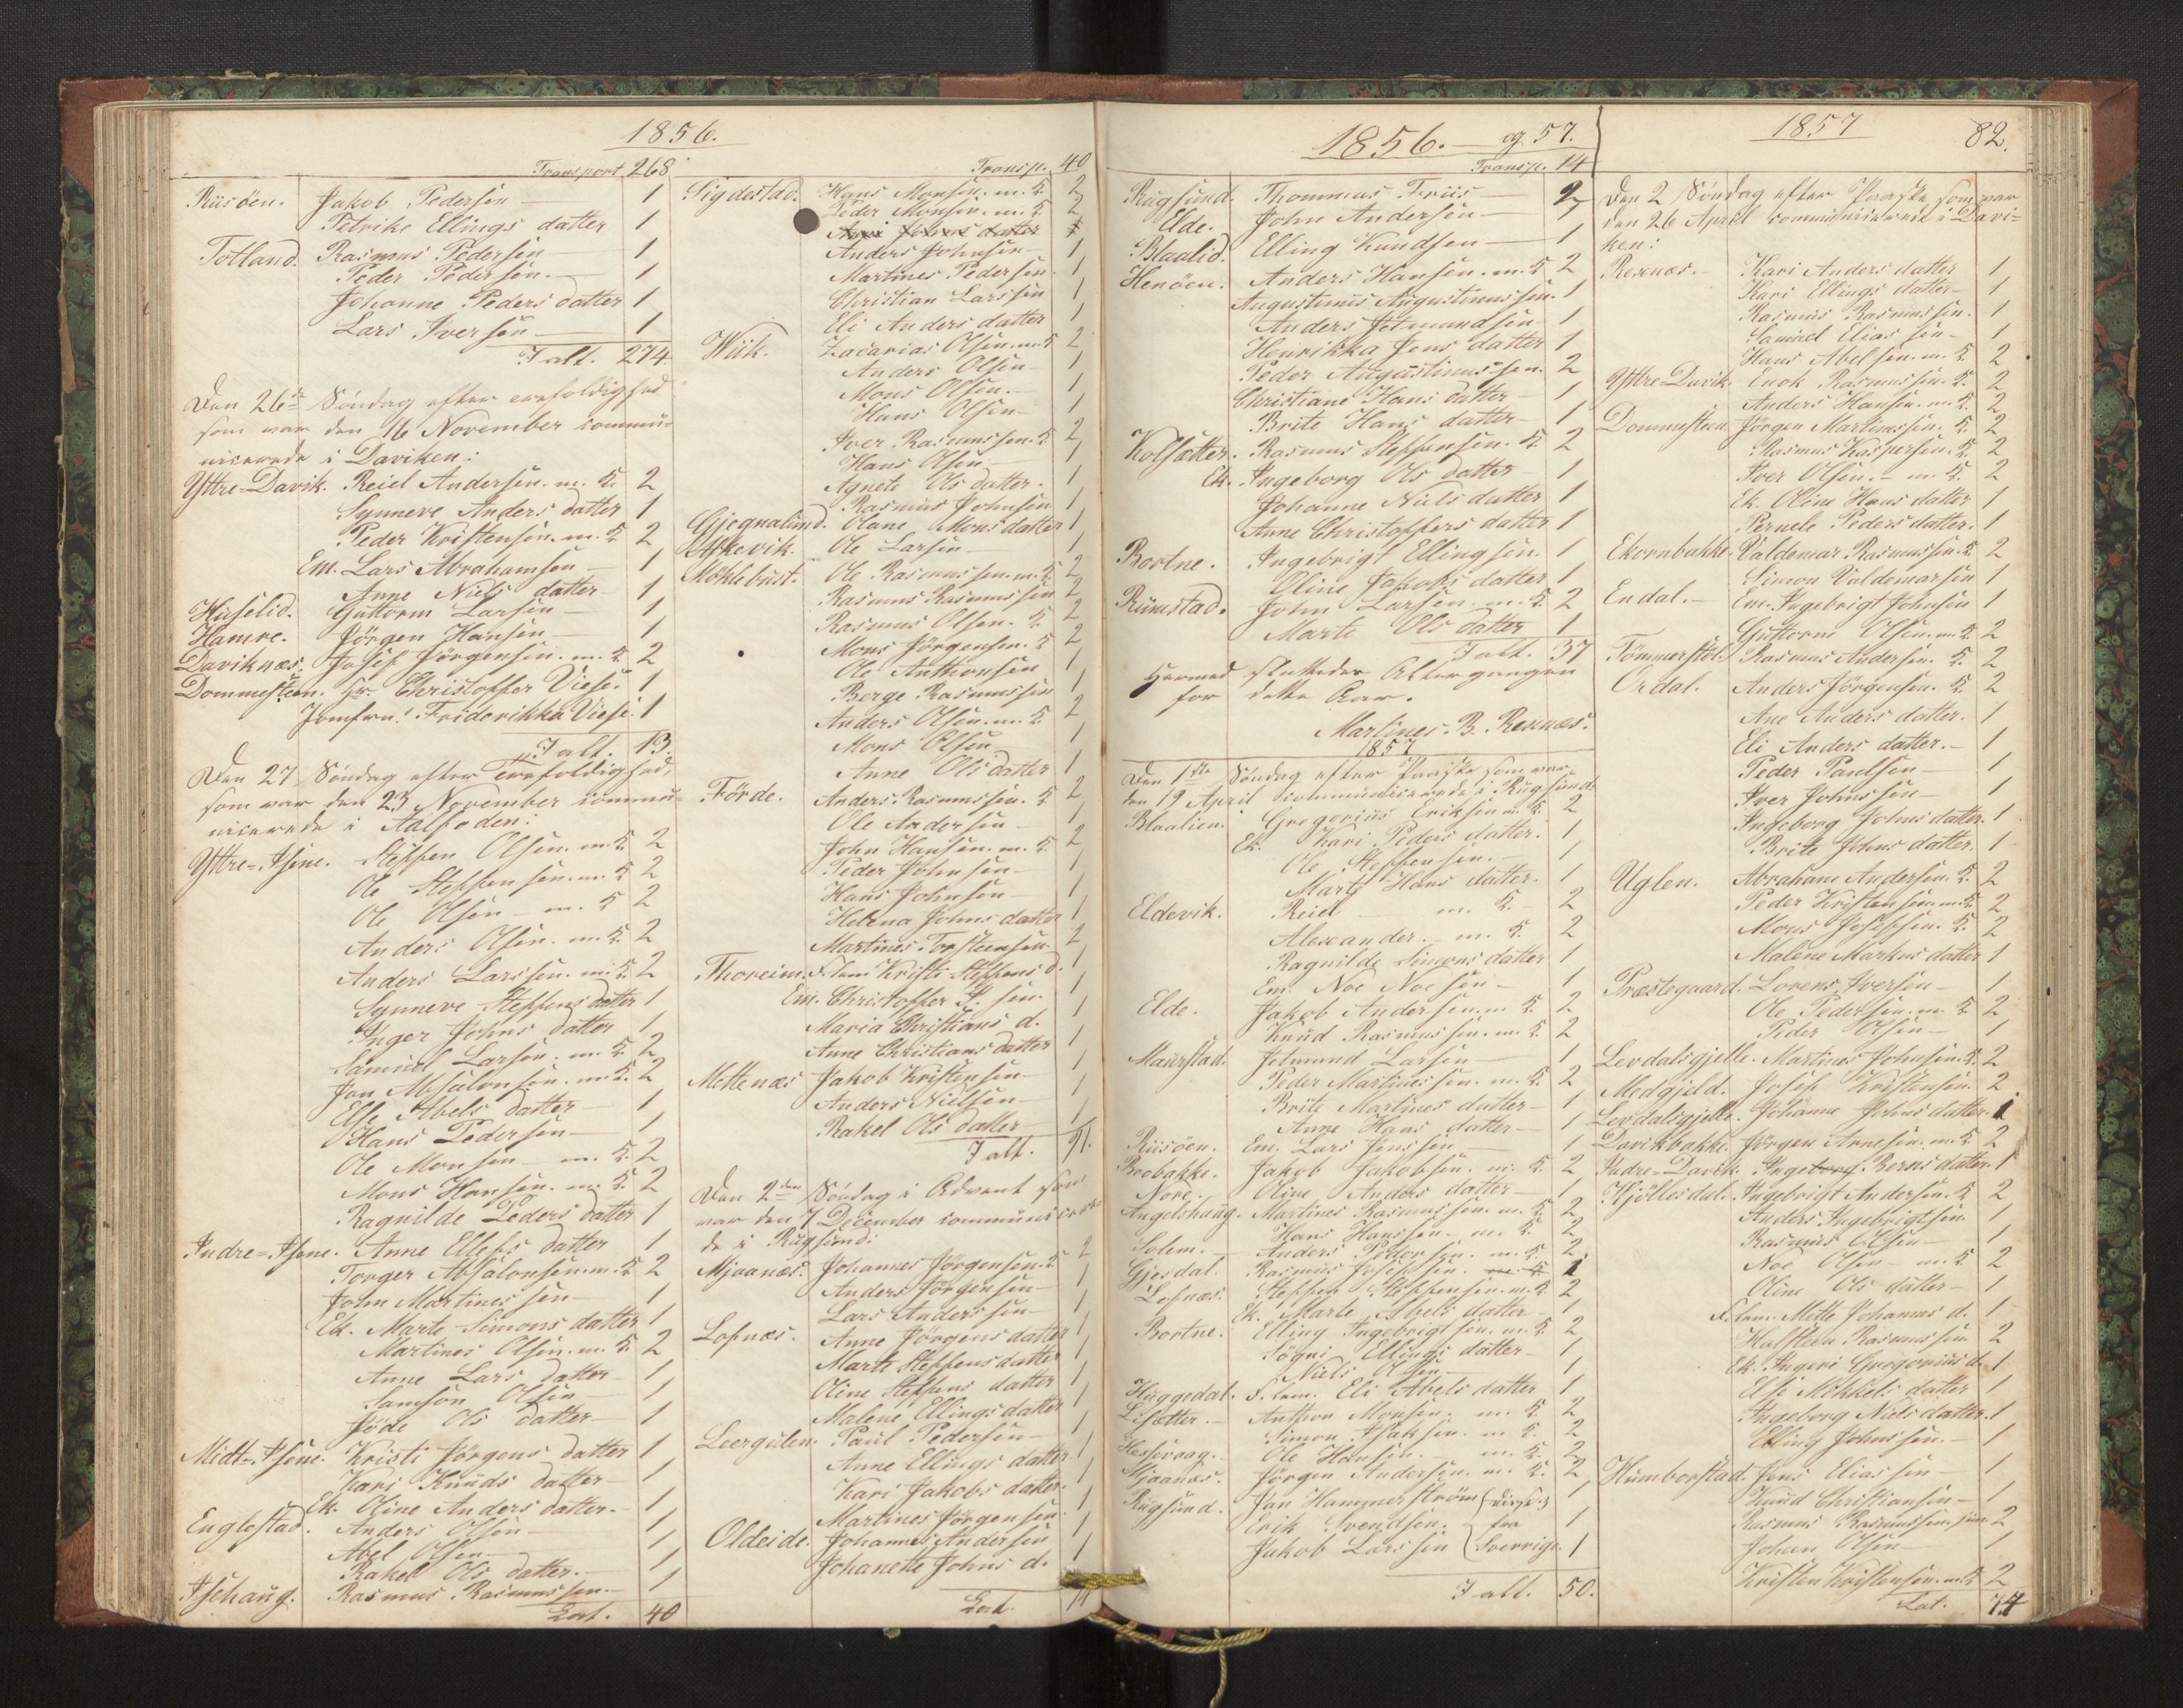 1856.
Transport 268
Riisöen. Jakob Pedersen 1
Petrike Ellings datter 1
Totland. Rasmus Pedersen 1
Peder Pedersen. 1
Johanne Peders datter 1
Lars Iversen 1
I alt. 274
Den 26de Söndag efter
som var den 16 November commu-
nicerede i Daviken:
Yttre-Davik. Reiel Andersen. m. K. 2
Synneve Anders datter 1
Peder Kristensen. m. K. 2
Em. Lars Abrahamsen 1
Anne Niels datter 1
Huselid. Guttorm Larsen 1
Hamre. Jörgen Hansen 1
Daviknæs. Josef Jörgensen. m. K. 2
Dommesteen. Hr. Christopher Wiese. 1
Jomfru. Friderikka Wiese. 1
I alt. 13.
Den 27 Söndag efter Trefoldighed,
som var den 23 November commu-
nicerede i Aalfoden:
Yttre-Isene. Steffen Olsen. m. K. 2
Ole Steffensen. m. K. 2
Ole Olsen m. K. 2
Anders Olsen. m. K. 2
Anders Larsen. m. K. 2
Synneve Steffens datter 1
Inger Johns datter 1
Samuel Larsen. m. K. 2
Jon Absalonsen. m. K. 2
Else Abels datter 1
Hans Pedersen 1
Ole Monsen m. K. 2
Mons Hansen. m. K. 2
Ragnilde Peders datter 1
Indre-Isene. Anne Ellefs datter 1
Torger Absalonsen. m. K. 2
John Martinessen 1
Ek. Marte Simons datter 1
Martines Olsen. m. K. 2
Anne Lars datter 1
Samson Olsen 1
Jöde Ols datter 1
Midt-Isene. Kristi Jörgens datter 1
Kari Knuds datter 1
Ek. Oline Anders datter. 1
Englestad. Anders Olsen 1
Abel Olsen 1
Rakel Ols datter. 1
Isehaug. Rasmus Rasmussen. 1
Lat. 40
Transp. 40
Sigdestad. Hans Monsen. m. K. 2
Peder Monsen. m. K. 2
Anders Johnsen 1
Martines Pedersen. 1
Christian Larssen 1
Eli Anders datter 1
Wiik. Zacarias Olsen. m. K. 2
Anders Olsen 1
Mons Olsen. 1
Hans Olsen 1
Iver Rasmussen. K. 2
Hans Olsen 1
Agnete Ols datter. 1
Rasmus Johnsen 1
Gjegnalund. Olane Mons datter 1
Askevik. Ole Larsen 1
Möklebust. Ole Rasmussen. m. K. 2
Rasmus Rasmussen 2
Rasmus Olsen. K. 2
Mons Jörgensen. K. 2
Ole Anthonsen 1
Berge Rasmussen 1
Anders Olsen. m. K. 2
Mons Olsen 1
Anne Ols datter 1
Förde. Anders Rasmussen. K. 2
Ole Andersen 1
John Hansen. m. K. 2
Peder Johnsen 1
Hans Johnsen 1
Helena Johns datter 1
Martines Torsteensen. 2
Thoreim. F. lem Kristi Steffens d. 1
Em. Christoffer S. sen. 1
Maria Christians d. 1
Anne Christians datter 1
Mettenæs Jakob Kristensen 1
Anders Nielsen 1
Rakel Ols datter 1
I alt. 91.
Den 2den Söndag i Advent som
var den 7 December communicere-
de i Rugsund:
Mjaanæs. Johannes Jörgensen. K. 2
Anders Jörgensen 1
Lars Anderssen 1
Lofnæs. Anne Jörgens datter 1
Marte Steffens datter 1
Oline Steffens datter 1
Malene Ellings datter 1
Leergulen. Paul Pedersen 1
Anne Ellings datter 1
Kari Jakobs datter. 1
Martines Jörgensen. 1
Oldeide. Johannes Andersen 1
Johanette Johns d. 1
Lat. 14
1856. og 57.
Transp. 14
Rugsund. Thommas Friis 2
Elde. John Andersen 1
Blaalid. Elling Knudsen 1
Henöen. Anders Hansen. m. K. 2
Augustinus Augustinussen. 1
Anders Jetmundsen 1
Henrikka Jens datter 1
Peder Augustinussen. 2
Christiane Hans datter 1
Brite Hans datter 1
Kolsætter. Rasmus Steffensen. K. 2
Ek. Ingeborg Ols datter 1
Johanne Niels datter 1
Anne Christoffers datter 1
Bortne. Ingebrigt Ellingsen. 1
Oline Jakobs datter 1
Rimstad. John Larsen. m. K. 2
Marte Ols datter 1
I alt. 37
Hermed sluttedes Altergangen
for dette Aar.
Martines. B. Rexnæs.
1857
Den 1ste Söndag efter Paaske som var
den 19 April communicerede i Rugsund
Blaalien. Gregorius Eriksen m. K. 2
Ek. Kari Peders datter. 1
Ole Steffensen. 1
Marte Hans datter. 1
Eldevik. Reiel m. K. 2
Alexander. m. K. 2
Ragnilde Simons datter 1
Em. Noe Noesen 1
Elde. Jakob Andersen. m. K. 2
Knud Rasmussen. m. K. 2
Maurstad. Jetmund Larsen 1
Peder Martinessen. m. K. 2
Brite Martines datter 1
Anne Hans datter 1
Riisöen. Em. Lars Jenssen 1
Brobakke. Jakob Jakobsen. m. K. 2
Nore. Oline Anders datter 1
Angelshaug. Martines Rasmussen. m. K. 2
Hans Hanssen m. K. 2
Solem. Anders Pedersen. m. K. 2
Gjesdal. Rasmus Josefsen. m. K. 1
Lefnæs. Steffen Steffensen. m. K. 2
Ek. Marte Abels datter 1
Bortne. Elling Ingebrigtsen. m. K. 2
Sögni Ellings datter 1
Niels Olsen 1
Huggedal. F. lem. Eli Abels datter 1
Lisætter. Anthon Monsen. m. K. 2
Simon Isaksen. m. K. 2
Hessevaag. Ole Hansen. m. K. 2
Mjaanæs. Jörgen Andersen. m. K. 2
Rugsund. Jan Hammerström disse 3 1
Erik Svendsen. fra 1
Jakob Larssen Sverrige. 1
I alt. 50.
1857 82.
Den 2 Söndag efter Paaske som var
den 26 April communicerede i Davi-
ken:
Rexnæs. Kari Anders datter 1
Kari Ellings datter 1
Rasmus Rasmussen. 1
Samuel Eliassen 1
Hans Abelsen. m. K. 2
Yttre-Davik. Enok Rasmussen. K. 2
Anders Hansen. m. K. 2
Dommesteen. Jörgen Martinessen. K. 2
Rasmus Kaspersen. K. 2
Iver Olsen. m. K. 2
Ek. Oline Hans datter 1
Pernele Peders datter. 1
Ekornbakke. Valdemar Rasmussen. K. 2
Simon Valdemarsen 1
Endal. Em. Ingebrigt Johnsen 1
Guttorm Olsen. m. K. 2
Tömmerstöl. Rasmus Andersen. K. 2
Ordal. Anders Jörgensen. K. 2
Ane Anders datter. 1
Eli Anders datter. 1
Peder Paulsen 1
Iver Johnssen 1
Ingeborg Johns datter. 1
Brite Johns datter. 1
Uglen. Abraham Andersen. K. 2
Peder Kristensen. m. K. 2
Mons Josefsen. K. 2
Malene Markus datter 1
Præstegaard. Lorens Iversen 1
Ole Pedersen. m. K. 2
Peder Olsen 1
Levdalsgjelle. Martines Johnsen. K. 2
Medgjeld. Josef Kristansen. 2
Levdalsgjelle. Johanne Johns datter. 1
Davikbakke. Jörgen Arnesen. m. K. 2
Indre-Davik. Ingeborg Berns datter. 1
Hjöllesdal. Ingebrigt Andersen. K. 2
Anders Ingebrigtsen. 1
Rasmus Olsen 1
Noe Olsen m. K. 2
Oline Ols datter 1
F. lem. Mette Johannes d. 1
Halsteen Rasmussen 2
Ek. Ingeri Gregorius d. 1
Else Mikkels datter 1
Ingeborg Niels datter. 1
Elling Johnssen. 1
Humborstad. Jens Eliassen 1
Knud Christiansen 1
Rasmus Rasmussen. 2
Johan Olsen 1
Kristen Kristensen. m. K. 2
Lat. 74